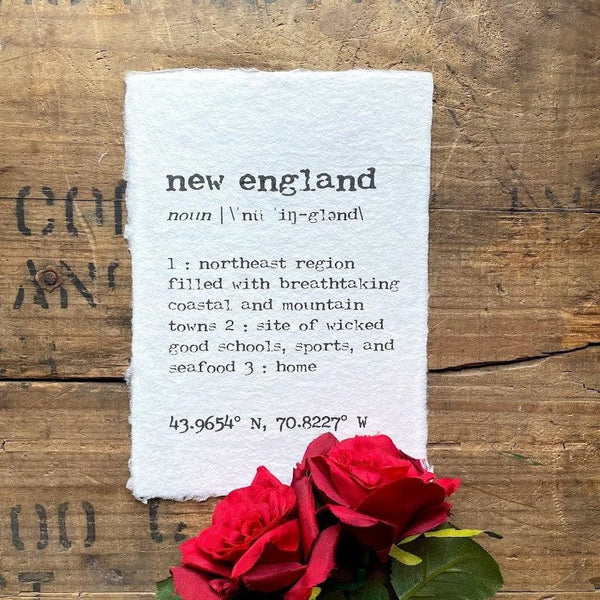 new england
noun | \'nü 'iŋ-glənd\
1 : northeast region
filled with breathtaking
coastal and mountain
towns 2 : site of wicked
good schools, sports, and
seafood 3 : home
43.9654° N, 70.8227° W